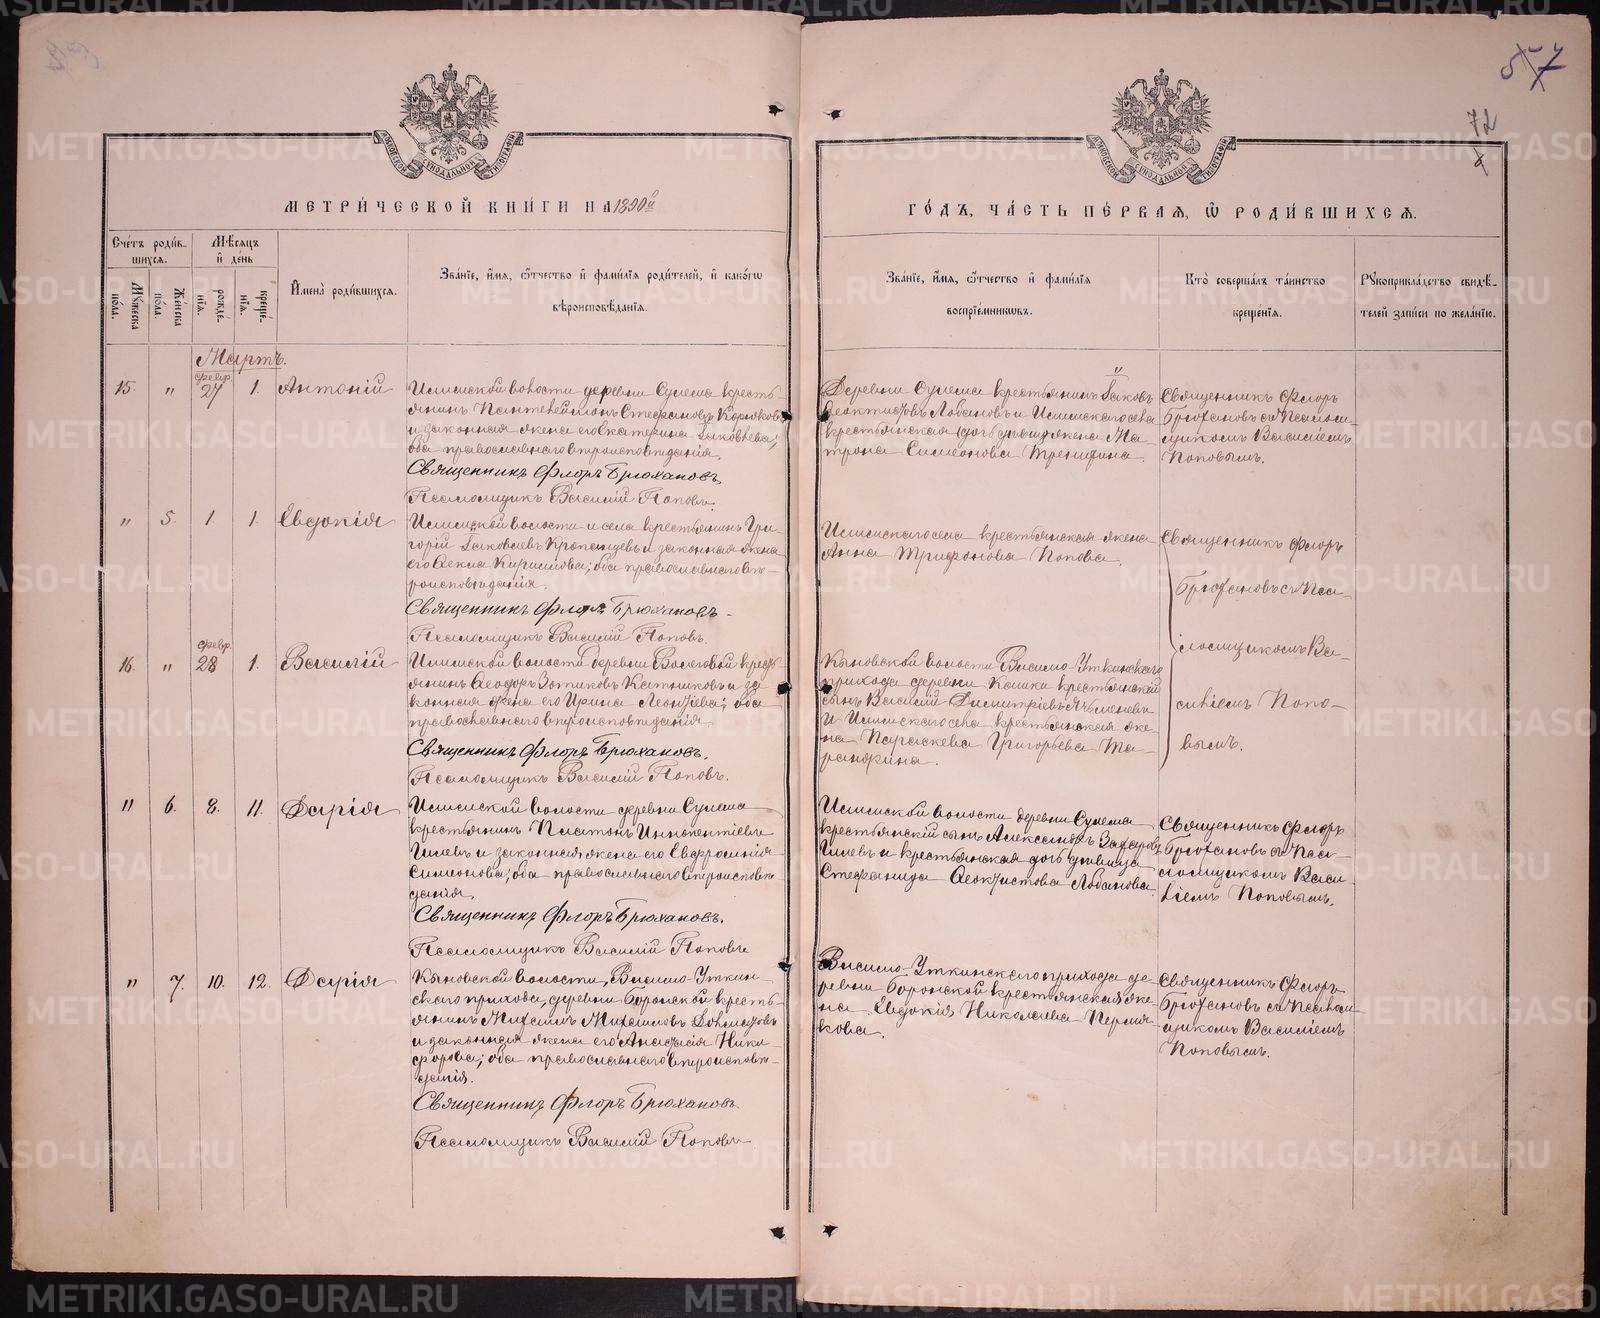 57
72
МЕТРИ́ЧЕСКОЙ КНИ́ГИ НА 1890й
ГО́ДЪ, ЧА́СТЬ ПЕ́РВАЯ, Ѿ РОДИ́ВШИХСЯ.
Сче́тъ роди́в-
шихся.
Му́жеска
по́ла.
Же́нска
по́ла.
Мѣ́сяцъ
и҆ де́нь
рожде́-
нія.
креще́-
нія.
И҆мена̀ роди́вшихся.
Зва́ніе, и҆́мя, ѻ҆́тчество и҆ фами́лія роди́телей, и҆ како́гѡ
вѣроисповѣ́данія.
Зва́ніе, и҆́мя, ѻ҆́тчество и҆ фами́лія
воспріе́мникѡвъ.
Кто̀ соверша́лъ та́инство
креще́нія.
Рꙋкоприкла́дство свидѣ́-
телей за́писи по жела́нію.
Мартъ.
15. " февр. 27 1. Антоній
Илимской волости деревни Сулема кресть
янинъ Пантелеймонъ Стефановъ Корюковъ
и законная жена его Екатерина Іаковлева;
оба православнаго вѣроисповѣданія.
Священникъ Флоръ Брюхановъ.
Псаломщикъ Василій Поповъ.
Деревни Сулема крестьянинъ Іаковъ
Ѳеоктистовъ Лобановъ и Илимскаго села
крестьянская дочь дѣвица Ма-
трона Симеонова
Священникъ Флоръ
Брюхановъ съ Псалом-
щикомъ Василіемъ
Поповымъ.
" 5. 1 1. Евдокія
Илимской волости и села крестьянинъ Гри-
горій Іаковлевъ и законная жена
его Кирилова; оба православнаго вѣ-
роисповѣданія.
Священникъ Флоръ Брюхановъ.
Псаломщикъ Василій Поповъ.
Илимскаго села крестьянская жена
Анна Трифонова Попова.
Священникъ Флоръ
Брюхановъ съ Пса-
ломщикомъ Ва-
силіемъ Попо-
вымъ.
16. " февр. 28 1. Василій
Илимской волости деревни Волеговой кресть
янинъ Ѳеодоръ Зотиковъ Катниковъ и за
конная жена его Ирина Леонтіева; оба
православнаго вѣроисповѣданія.
Священникъ Флоръ Брюхановъ.
Псаломщикъ Василій Поповъ.
Кыновской волости Висимо-Уткинскаго
прихода деревни Кашки крестьянскій
сынъ Василій Димитріевъ Ячменевъ
и Илимскаго села крестьянская же-
на Параскева Григорьева Та-
ранжина.
" 6. 8. 11. Дарія
Илимской волости деревни Сулема
крестьянинъ Платонъ Иннокентіевъ
Шилевъ и законная жена его Евфросинія
Симеонова; оба православнаго вѣроисповѣ
данія.
Священникъ Флоръ Брюхановъ.
Псаломщикъ Василій Поповъ
Илимской волости деревни Сулема
крестьянскій сынъ Александръ Захаровъ
Шилевъ и крестьянская дочь дѣвица
Стефанида Ѳеоктистова Лобанова
Священникъ Флоръ
Брюхановъ съ Пса-
ломщикомъ Васи
ліемъ Поповымъ.
" 7. 10. 12. Дарія
Кыновской волости, Висимо-Уткин
скаго прихода, деревни Боронской кресть-
янинъ Михаилъ Михаиловъ
и законная жена его Анастасія Ники
форова; оба православнаго вѣроисповѣ-
данія.
Священникъ Флоръ Брюхановъ.
Псаломщикъ Василій Поповъ
Висимо-Уткинскаго прихода де-
ревни Боронской крестьянская же-
на Евдокія Николаева Пермя-
кова.
Священникъ Флоръ
Брюхановъ съ Псалом-
щикомъ Василіемъ
Поповымъ.
METRIKI.GASO-URAL.RU